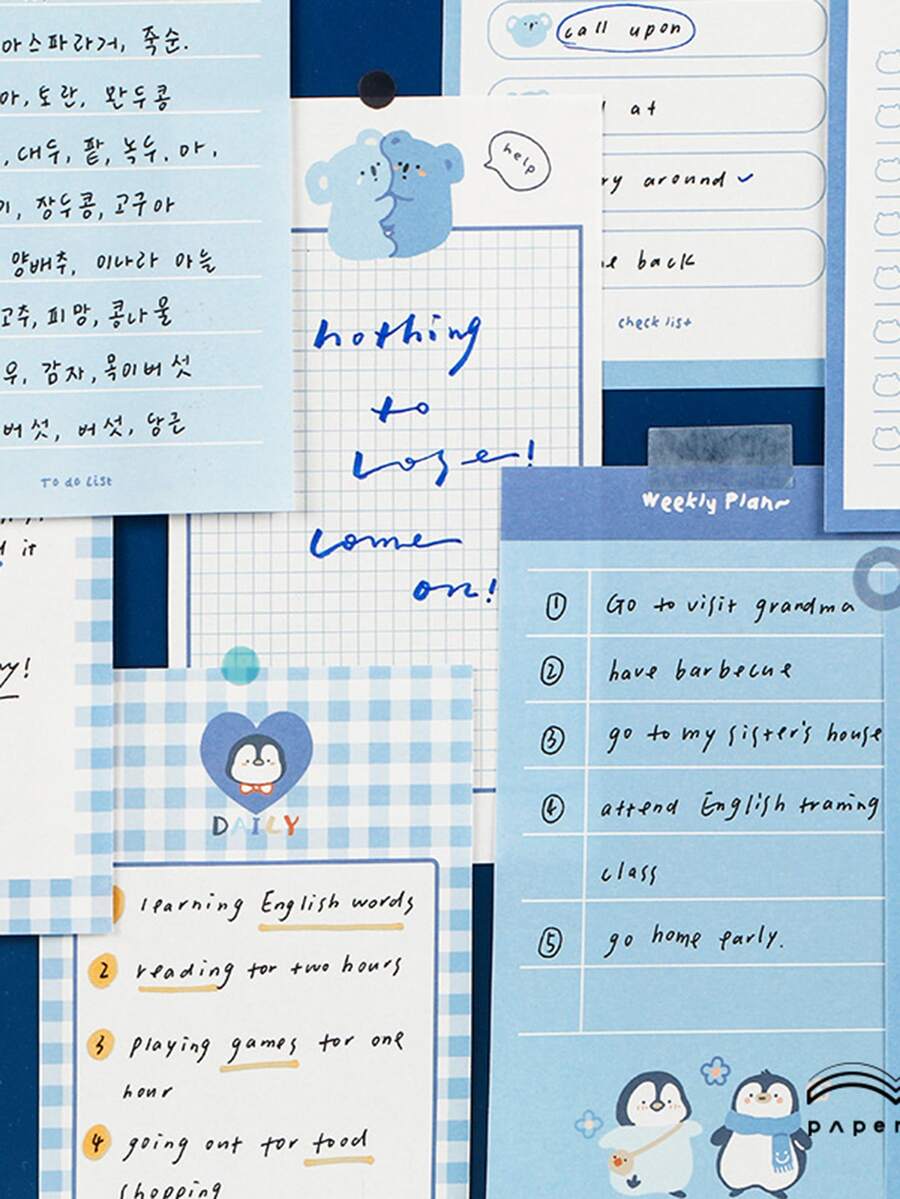 아스파라거, 죽순.
아, 토란, 완두콩
, 대두, 팥, 녹두, 마,
, 장두콩, 고구아
양배추, 이나라 아늘
고추, 피망, 콩나물
우, 감자, 목이버섯
버섯, 버섯, 당근
To do List
call upon
at
ry around ✓
back
check list
help
nothing
to
Lose!
come
on!
it
y!
Weekly Plan~
① Go to visit grandma
② have barbecue
③ go to my sister's house
④ attend English traming
class
⑤ go home early.
DAILY
learning English words
2 reading for two hours
3 playing games for one
hour
4 going out for food
shopping
paper